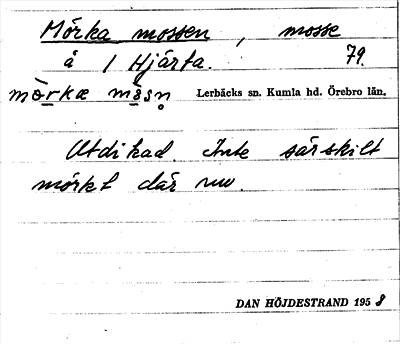 Mörka mossen, mosse
å 1 Hjärta. 79.
mòrkæ måsn̥ Lerbäcks sn. Kumla hd. Örebro län.
Utdikad. Inte särskilt
mörkt där nu.
DAN HÖJDESTRAND 1958